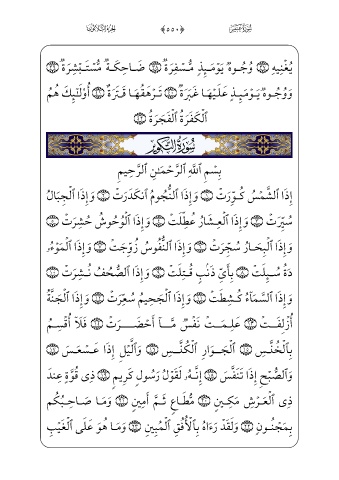 سُورَةُ عَبَسَ ﴿٥٥٠﴾ الجُزءُ الثَّلَاثُونَ
يُغْنِيهِ ﴿٣٧﴾ وُجُوهٌ يَوْمَئِذٍ مُّسْفِرَةٌ ﴿٣٨﴾ ضَاحِكَةٌ مُّسْتَبْشِرَةٌ ﴿٣٩﴾
وَوُجُوهٌ يَوْمَئِذٍ عَلَيْهَا غَبَرَةٌ ﴿٤٠﴾ تَرْهَقُهَا قَتَرَةٌ ﴿٤١﴾ أُوْلَٰٓئِكَ هُمُ
ٱلْكَفَرَةُ ٱلْفَجَرَةُ ﴿٤٢﴾
سُورَةُ التَّكْوِيرِ
بِسْمِ ٱللَّهِ ٱلرَّحْمَٰنِ ٱلرَّحِيمِ
إِذَا ٱلشَّمْسُ كُوِّرَتْ ﴿١﴾ وَإِذَا ٱلنُّجُومُ ٱنكَدَرَتْ ﴿٢﴾ وَإِذَا ٱلْجِبَالُ
سُيِّرَتْ ﴿٣﴾ وَإِذَا ٱلْعِشَارُ عُطِّلَتْ ﴿٤﴾ وَإِذَا ٱلْوُحُوشُ حُشِرَتْ ﴿٥﴾
وَإِذَا ٱلْبِحَارُ سُجِّرَتْ ﴿٦﴾ وَإِذَا ٱلنُّفُوسُ زُوِّجَتْ ﴿٧﴾ وَإِذَا ٱلْمَوْءُۥ
دَةُ سُئِلَتْ ﴿٨﴾ بِأَيِّ ذَنۢبٍ قُتِلَتْ ﴿٩﴾ وَإِذَا ٱلصُّحُفُ نُشِرَتْ ﴿١٠﴾
وَإِذَا ٱلسَّمَآءُ كُشِطَتْ ﴿١١﴾ وَإِذَا ٱلْجَحِيمُ سُعِّرَتْ ﴿١٢﴾ وَإِذَا ٱلْجَنَّةُ
أُزْلِفَتْ ﴿١٣﴾ عَلِمَتْ نَفْسٌ مَّآ أَحْضَرَتْ ﴿١٤﴾ فَلَآ أُقْسِمُ
بِٱلْخُنَّسِ ﴿١٥﴾ ٱلْجَوَارِ ٱلْكُنَّسِ ﴿١٦﴾ وَٱلَّيْلِ إِذَا عَسْعَسَ ﴿١٧﴾
وَٱلصُّبْحِ إِذَا تَنَفَّسَ ﴿١٨﴾ إِنَّهُۥ لَقَوْلُ رَسُولٍ كَرِيمٍ ﴿١٩﴾ ذِى قُوَّةٍ عِندَ
ذِى ٱلْعَرْشِ مَكِينٍ ﴿٢٠﴾ مُّطَاعٍ ثَمَّ أَمِينٍ ﴿٢١﴾ وَمَا صَاحِبُكُم
بِمَجْنُونٍ ﴿٢٢﴾ وَلَقَدْ رَءَاهُ بِٱلْأُفُقِ ٱلْمُبِينِ ﴿٢٣﴾ وَمَا هُوَ عَلَى ٱلْغَيْبِ